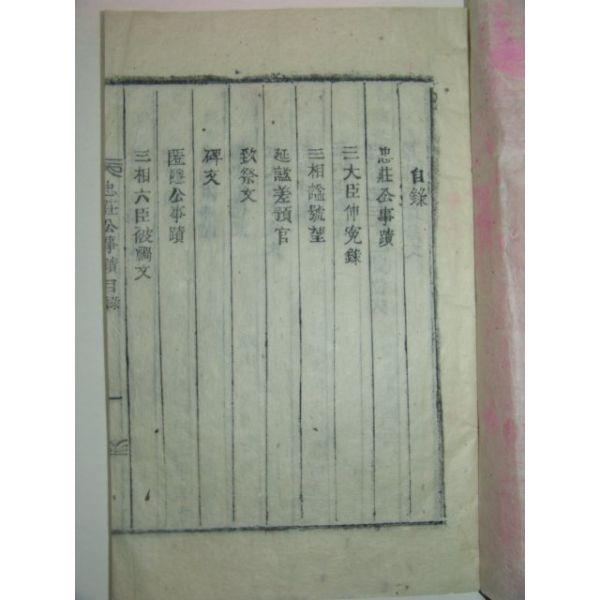 目錄
忠莊公事蹟
三大臣伸寃錄
三相諡號望
延諡差預官
致祭文
碑文
匿隱公事蹟
三相六臣被禍文
忠莊公事蹟目錄 一